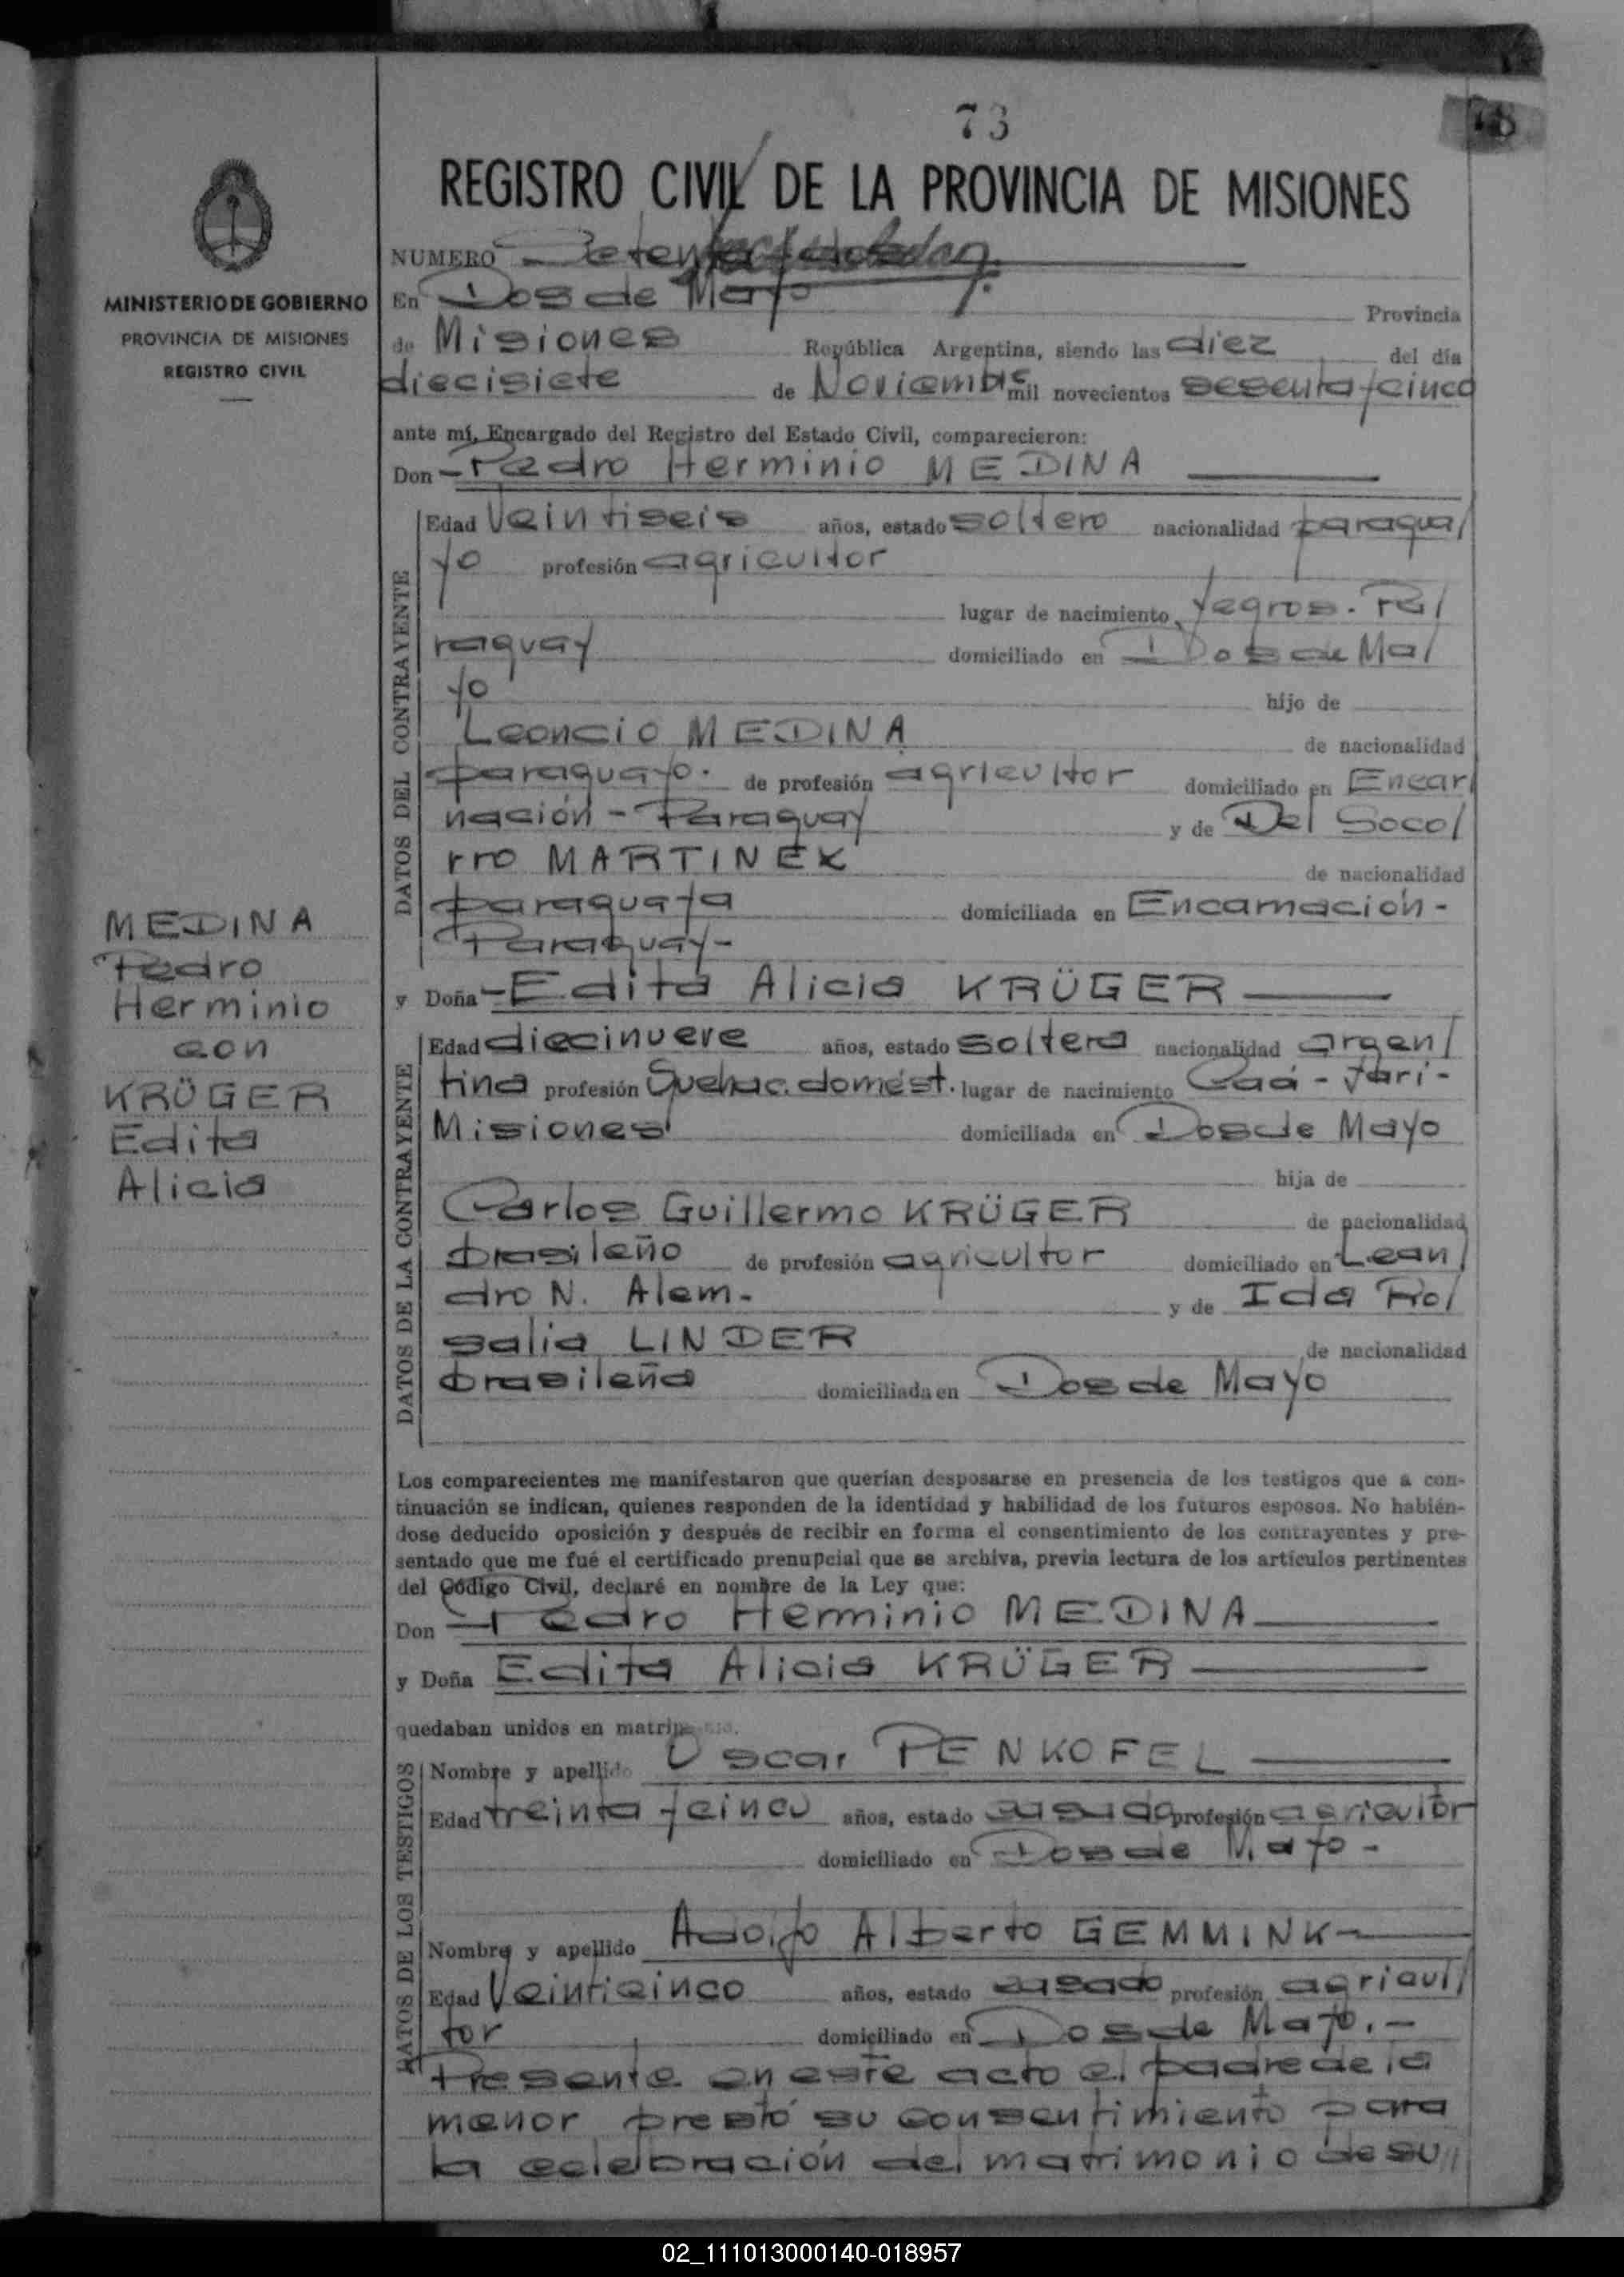 73
REGISTRO CIVIL DE LA PROVINCIA DE MISIONES
MINISTERIO DE GOBIERNO
PROVINCIA DE MISIONES
REGISTRO CIVIL
NUMERO
En Dos de Mayo Provincia
de Misiones República Argentina, siendo las diez del día
diecisiete de Noviembre mil novecientos sesenta y cinco
ante mí, Encargado del Registro del Estado Civil, comparecieron:
Don - Pedro Herminio MEDINA
DATOS DEL CONTRAYENTE
Edad Veintiseis años, estado soltero nacionalidad paragua/
yo profesión agricultor
lugar de nacimiento Yegros. Pa/
raguay domiciliado en Dos de Ma/
yo hijo de
Leoncio MEDINA de nacionalidad
paraguayo. de profesión agricultor domiciliado en Encar/
nación - Paraguay y de Del Soco/
rro MARTINEZ de nacionalidad
paraguaya domiciliada en Encarnación -
Paraguay -
y Doña - Edita Alicia KRÜGER
MEDINA
Pedro
Herminio
con
KRÜGER
Edita
Alicia
DATOS DE LA CONTRAYENTE
Edad diecinueve años, estado soltera nacionalidad argen/
tina profesión Quehac. domést. lugar de nacimiento Caá - Yarí -
Misiones domiciliada en Dos de Mayo
hija de
Carlos Guillermo KRÜGER de nacionalidad
brasileño de profesión agricultor domiciliado en Lean/
dro N. Alem - y de Ida Ro/
salia LINDER de nacionalidad
brasileña domiciliada en Dos de Mayo
Los comparecientes me manifestaron que querían desposarse en presencia de los testigos que a con-
tinuación se indican, quienes responden de la identidad y habilidad de los futuros esposos. No habién-
dose deducido oposición y después de recibir en forma el consentimiento de los contrayentes y pre-
sentado que me fué el certificado prenupcial que se archiva, previa lectura de los artículos pertinentes
del Código Civil, declaré en nombre de la Ley que:
Don Pedro Herminio MEDINA
y Doña Edita Alicia KRÜGER
quedaban unidos en matrimonio.
DATOS DE LOS TESTIGOS
Nombre y apellido Oscar PENKOFEL
Edad treinta y cinco años, estado casado profesión agricultor
domiciliado en Dos de Mayo -
Nombre y apellido Adolfo Alberto GEMMINK -
Edad Veinticinco años, estado casado profesión agricul/
tor domiciliado en Dos de Mayo. -
Presente en este acto el padre de la
menor prestó su consentimiento para
la celebración del matrimonio de su //
02_111013000140-018957